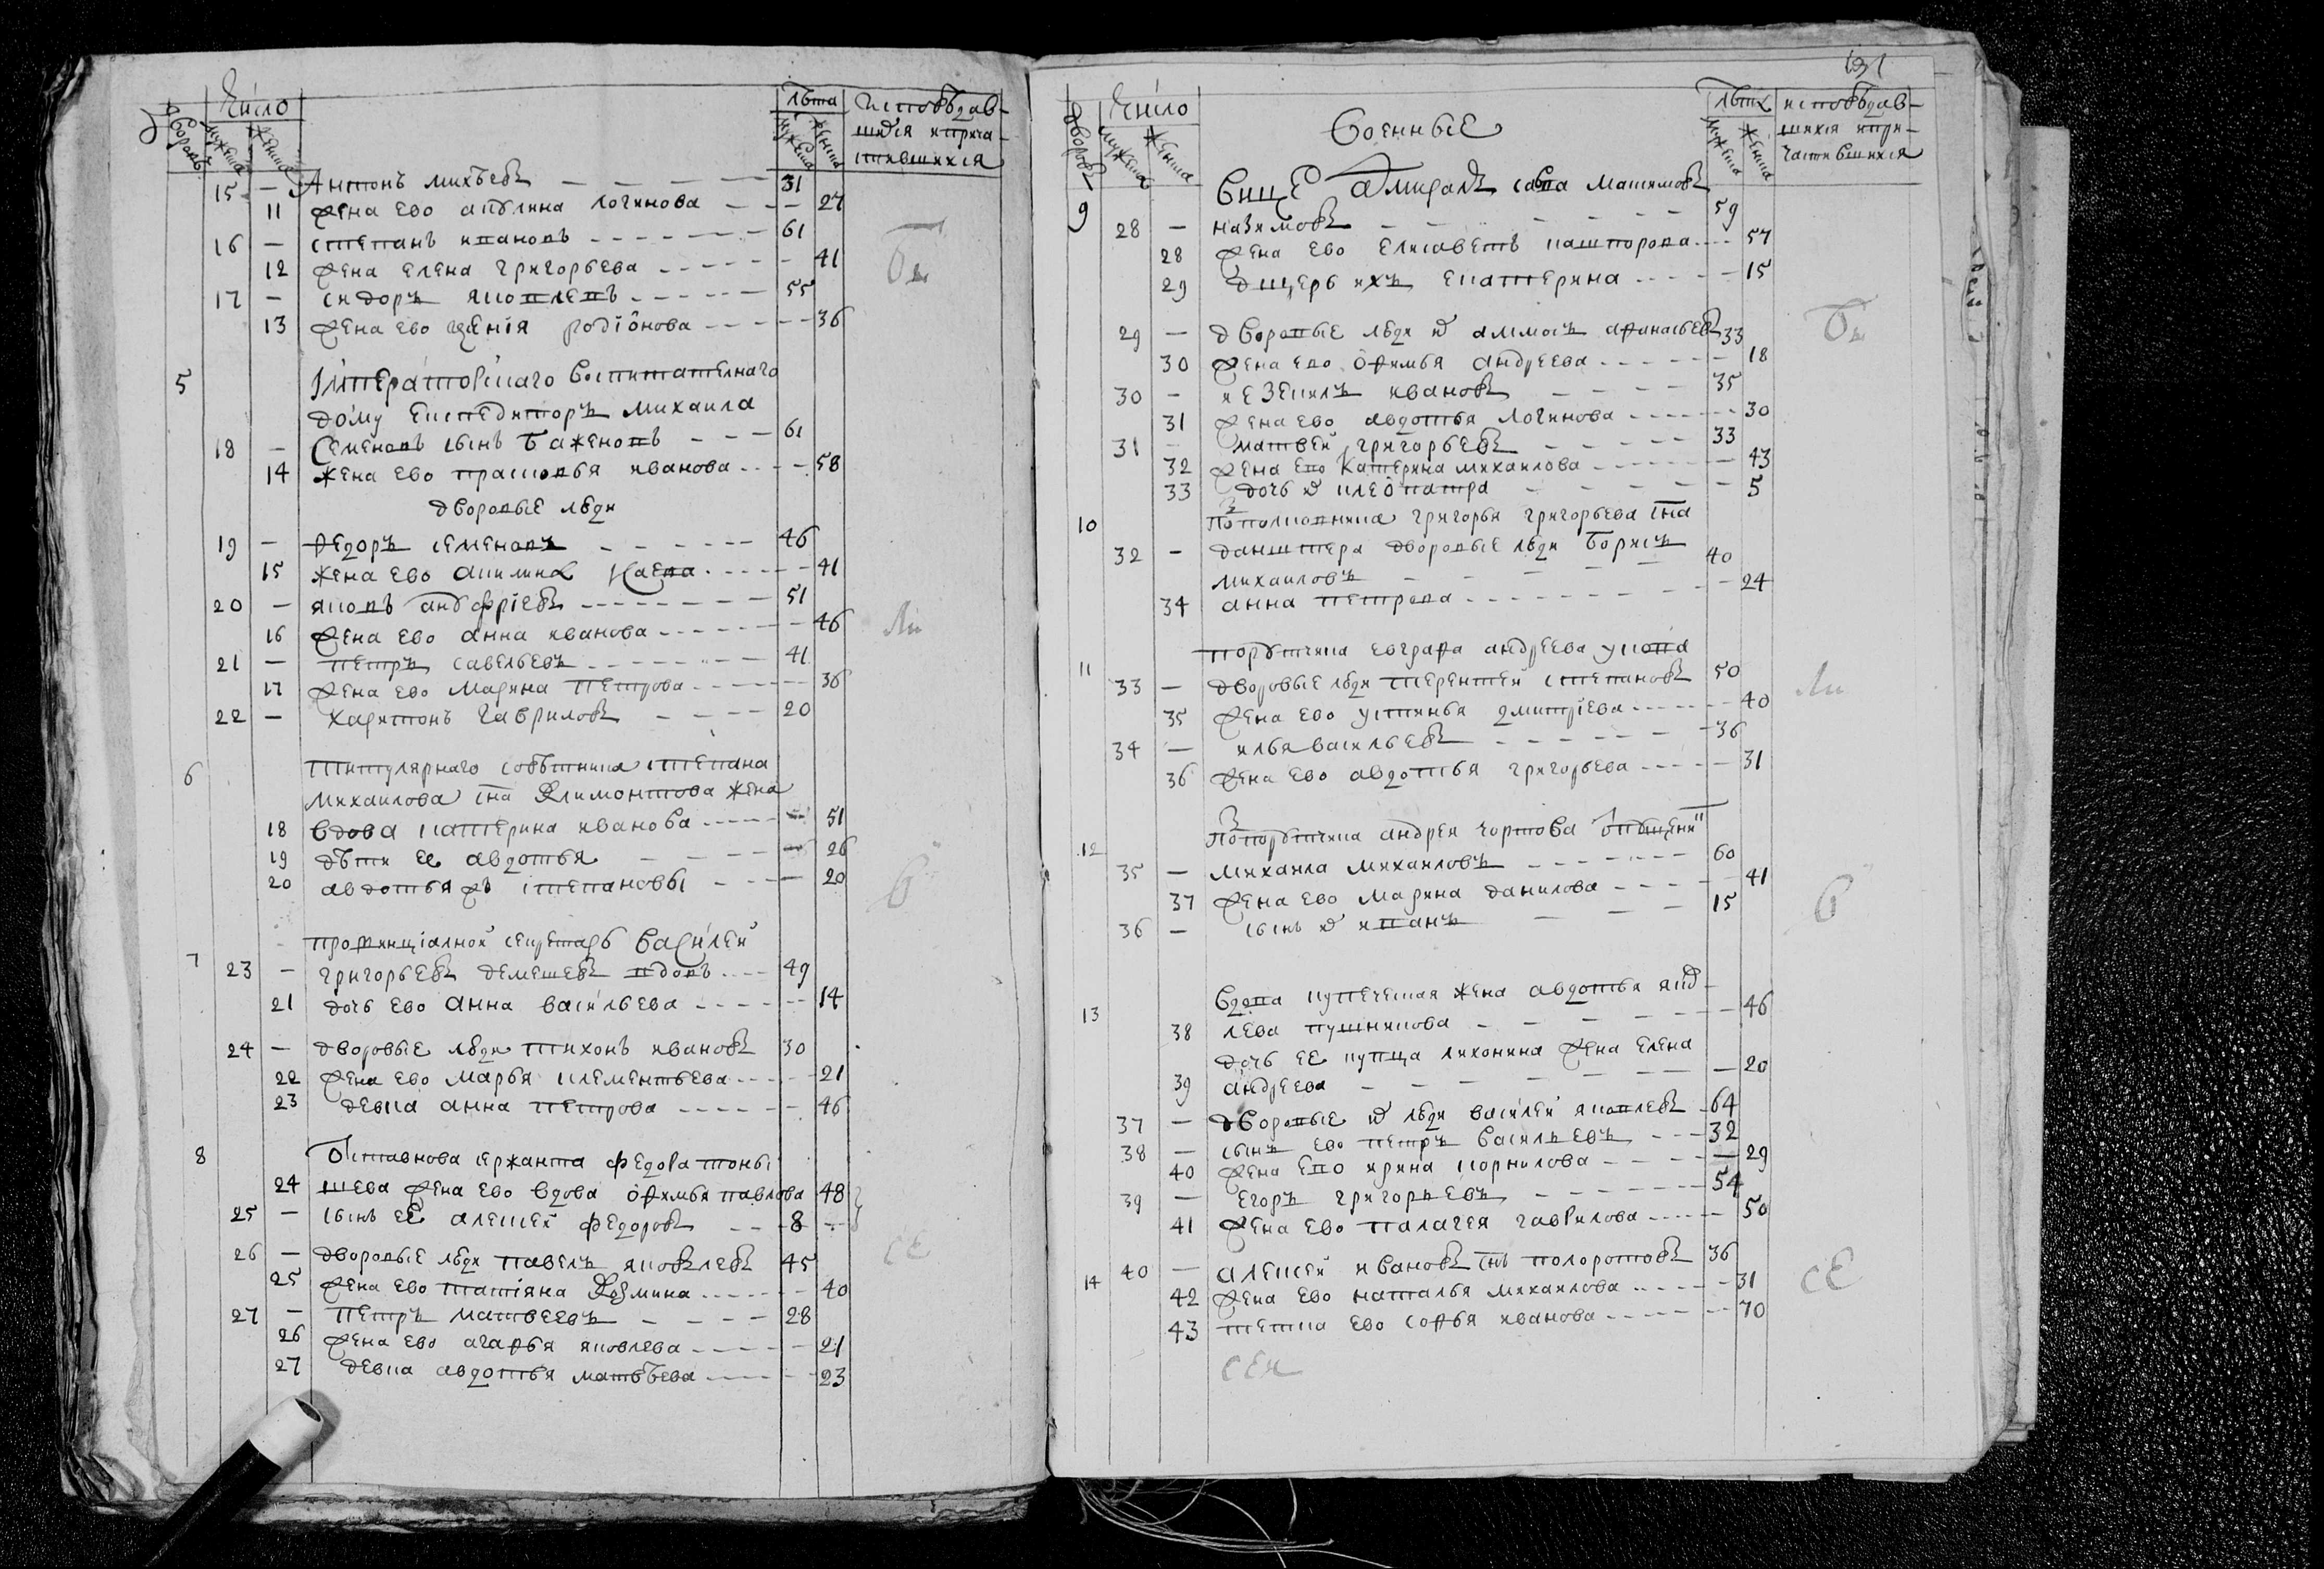 число
лѣта
исповѣдав-
дворовъ
мужеска
женска
мужеска
женска
шихся и прича-
стившихся
15 — Антонъ михѣевъ — — — 31
11 жена ево акулина логинова — — — 27
16 — степанъ ивановъ — — — 61
12 жена елена григорьева — — — 41
17 — сидоръ яковлевъ — — — 55
13 жена ево ксенія родіонова — — — 36
5 Імператорскаго воспитателнаго
дому експедиторъ михаила
18 — Семеновъ сынъ баженовъ — — — 61
14 жена ево прасковья иванова — — 58
дворовые люди
19 — ѳедоръ семеновъ — — — 46
15 жена ево акилина — — — 41
20 — яковъ — — — 51
16 жена ево анна иванова — — — 46
21 — петръ савельевъ — — — 41
17 жена ево марина петрова — — — 36
22 — харитонъ гавриловъ — — — 20
6 титулярнаго совѣтника степана
михаилова сна климонтова жена
18 вдова катерина иванова — — — 51
19 дѣти ее авдотья — — — 26
20 авдотья ж степановы — — — 20
провинціалной секретарь василей
7 23 — григорьевъ демешевъ вдовъ — — 49
21 дочь ево анна васильева — — — 14
24 — дворовые люди тихонъ ивановъ 30
22 жена ево марья клементьева — — — 21
23 девка анна петрова — — — 46
8 Отставнова сержанта федора тоны
24 шева жена ево вдова офимья павлова 48
25 — сынъ ее алексей федоровъ — — 8
26 — дворовые люди павелъ яковлевъ 45
25 жена ево татіяна козмина — — — 40
27 — петръ матвеевъ — — — 28
26 жена ево агафья яковлева — — — 21
27 девка авдотья матвѣева — — — 23
131
число
лѣта
исповѣдав-
дворовъ
мужеска
женска
Военные
мужеска
женска
шихся и при-
частившихся
вице адмиралъ савва максимовъ
9 28 — назимовъ — — — 59
28 жена ево елисаветъ — — 57
29 дщерь ихъ екатерина — — — 15
29 — дворовые люди аммосъ афанасьевъ 33
30 жена ево офимья андреева — — — 18
30 — иезекилъ ивановъ — — — 35
31 жена ево авдотья логинова — — — 30
31 — матвей григорьевъ — — — 33
32 жена ево катерина михаилова — — — 43
33 дочь клеопатра — — — 5
10 Полковника григорья григорьева сна
32 — дворовые люди борисъ
михаиловъ — — — 40
34 анна петрова — — — 24
порутчика евграфа андреева
11 33 — дворовые люди терентей степановъ 50
35 жена ево устинья дмитріева — — — 40
34 — илья васильевъ — — — 36
36 жена ево авдотья григорьева — — — 31
Подпорутчика андрея чортова
12 35 — михаила михаиловъ — — — 60
37 жена ево марина данилова — — — 41
36 — сынъ иванъ — — — 15
вдова купеческая жена авдотья яков
13 38 лева пушникова — — — 46
дочь ее купца лихонина жена елена
39 андреева — — — 20
37 — дворовые люди василей яковлевъ 64
38 — сынъ ево петръ васильевъ — — 32
40 жена ево ирина корнилова — — — 29
39 — егоръ григорьевъ — — — 54
41 жена ево палагея гаврилова — — — 50
14 40 — алексей ивановъ снъ полоротовъ 36
42 жена ево наталья михаилова — — — 31
43 тетка ево софья иванова — — — 70